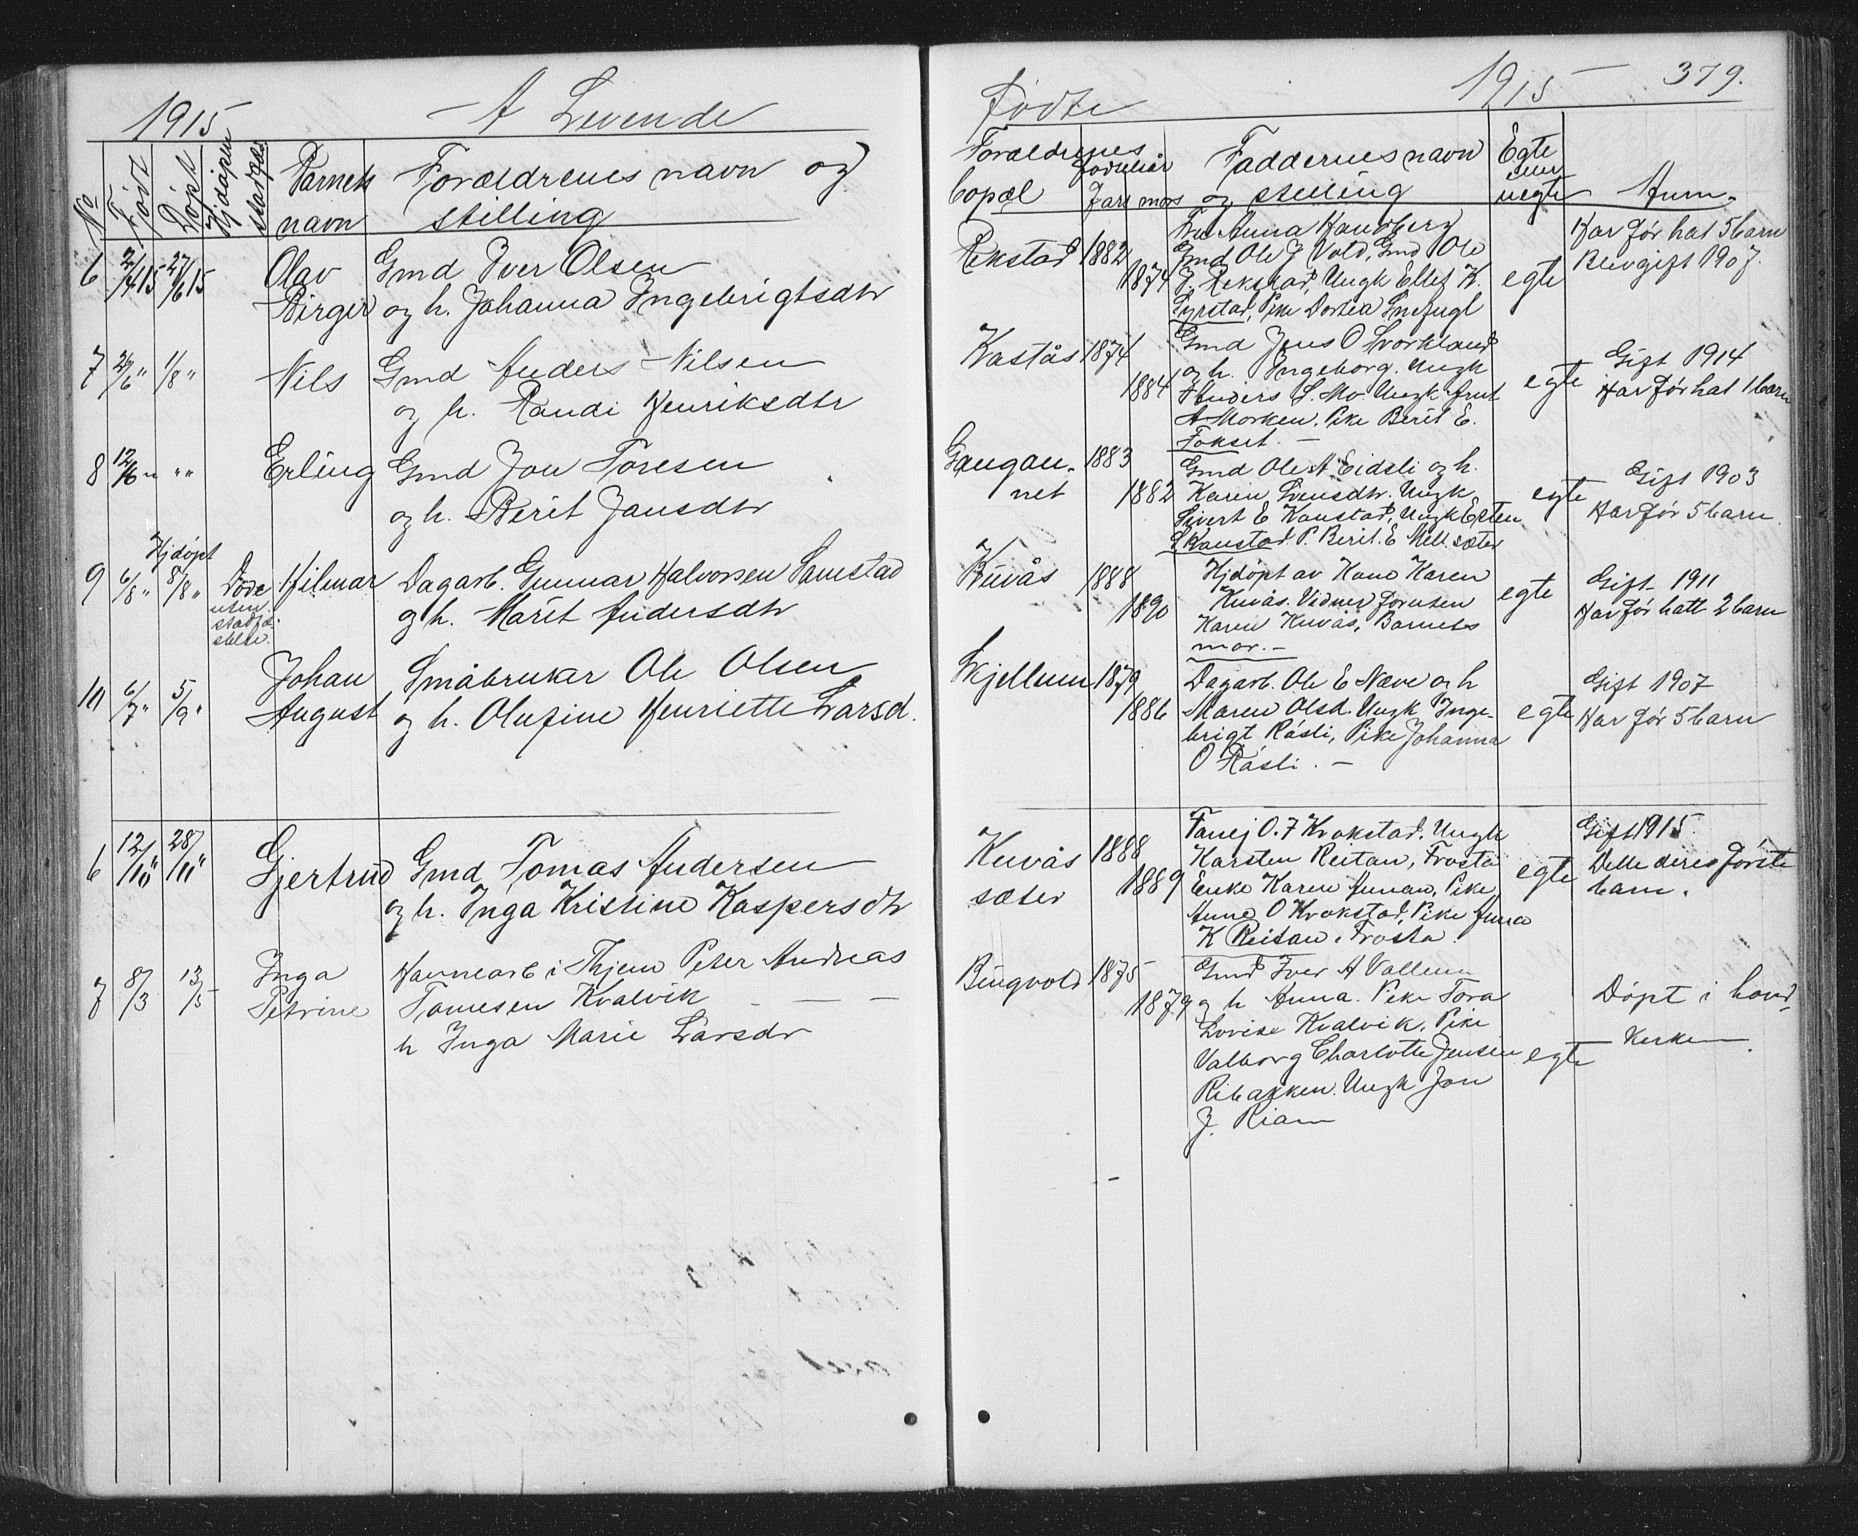 1915 — A Levende
No Født Døpt Hjdøpen stadfæs Barnets navn Forældrenes navn og stilling
6 2/4 15 27/6 15 Olav Gmd Iver Olsen
Birger og h. Johanna Ingebrigtsdtr
7 26/6 " 1/8 " Nils Gmd Anders Nilsen
og h. Randi Henriksdtr
8 12/6 " " " Erling Gmd Jon Toresen
og h. Berit Jansdtr
Hjdøpt
9 6/8 " 8/8 " Døde Hilmar Dagarb. Gunnar Halvorsen Samstad
uten og h. Marit Andersdtr
stadfæ-
stelse.
10 6/7 " 5/9 " Johan Småbruker Ole Olsen
August og h. Olufine Henriette Larsd.
6 12/10 " 28/11 " Gjertrud Gmd Tomas Andersen
og h. Inga Kristine Kaspersdtr
7 8/3 13/5 Inga Havnearb i Thjem Peter Andreas
Petrine Tomesen Kvalvik — — —
h Inga Marie Larsdr
Fødte 1915 — 379.
Forældrenes bopæl fødselsår fars mors Faddernes navn og stilling Egte eller uegte Anm.
Fru Anna Handberg Har før hat 5 barn
Rekstad 1882 Gmd Ole J Vold, Gmd Ole Blev gift 1907.
1874 J. Rekstad, Ungk Ellef K. egte
Syrstad, Pike Dortea Snefugl
Kastås 1874 Gmd Jens O Svorkland Gift 1914
1884 og h. Ingeborg. Ungk egte Har før hat 1 barn
Anders S. Mo. Ungk Arnt
A Morken. Pike Berit E.
Fokset. —
Gangåu- 1883 Gmd Ole A Eidsli og h. Gift 1903
net 1882 Karen Svensdtr. Ungk egte Har før 5 barn
Sivert E Kaustad, Ungk Esten
S Kaustad. P. Berit E Mell. sæter
Kuvås 1888 Hjdøpt av Kone Karen Gift 1911
1890 Kuvås. Vidner foruten egte Har før hatt 2 barn
Karen Kuvås, Barnets
mor. —
Skjellum 1879 Dagarb. Ole E Næve og h Gift 1907
1886 Maren Olsd. Ungk Inge- egte Har før 5 barn
brigt Råsli, Pike Johanna
O Råsli. —
Kuvås 1888 Tanej O. F Krokstad. Ungk Gift 1915
sæter 1889 Karsten Reitan, Frosta egte Dette deres første
Enke Karen Aunan, Pike barn.
Anne O Krokstad, Pike Anna
K Reitan, Frosta.
Bingvold 1875 Gmd Iver A Vallum
1879 og h Anna. Pike Tora Døpt i hoved-
Lovise Kvalvik, Pike kirken
Valborg Charlotte Jensen egte
Ribakken. Ungk Jon
J. Riam